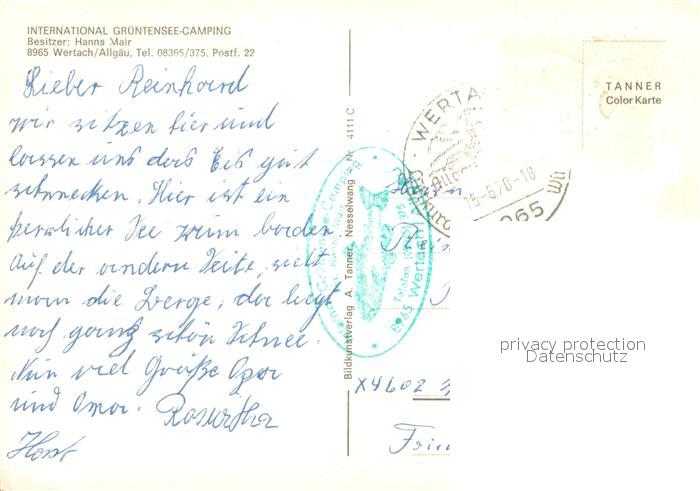 INTERNATIONAL GRÜNTENSEE-CAMPING
Besitzer: Hanns Mair
8965 Wertach/Allgäu, Tel. 08365/375, Postf. 22
Lieber Reinhard
wir sitzen hier und
lassen uns das Eis gut
schmecken. Hier ist ein
herrlicher See zum baden
Auf der andern Seite, sieht
man die Berge, da liegt
noch ganz schön Schnee.
Nun viel Grüße Opa
und Oma.
Horst
Bildkunstverlag A. Tanner, Nesselwang Nr. 4111 C
TANNER
Color Karte
WERTA
15.-6.70-18
8965 Wertach
Telefon
X4602
privacy protection
Datenschutz